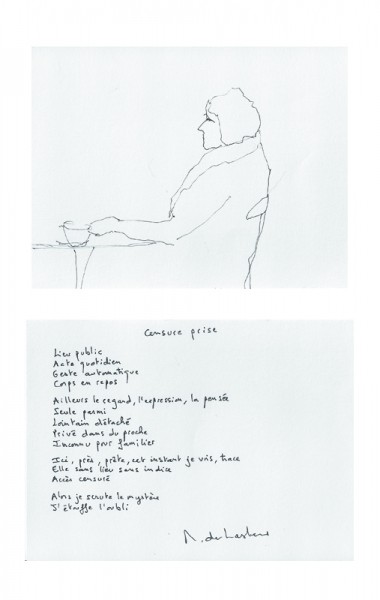 Censure prise
Lieu public
Acte quotidien
Geste automatique
Corps en repos
Ailleurs le regard, l'expression, la pensée
Seule parmi
Lointain détaché
Privé dans du proche
Inconnu pour familier
Ici, près, prête, cet instant je trace
Elle sans lieu sans indice
Accès censuré
Alors je scrute le mystère
J'étouffe l'oubli